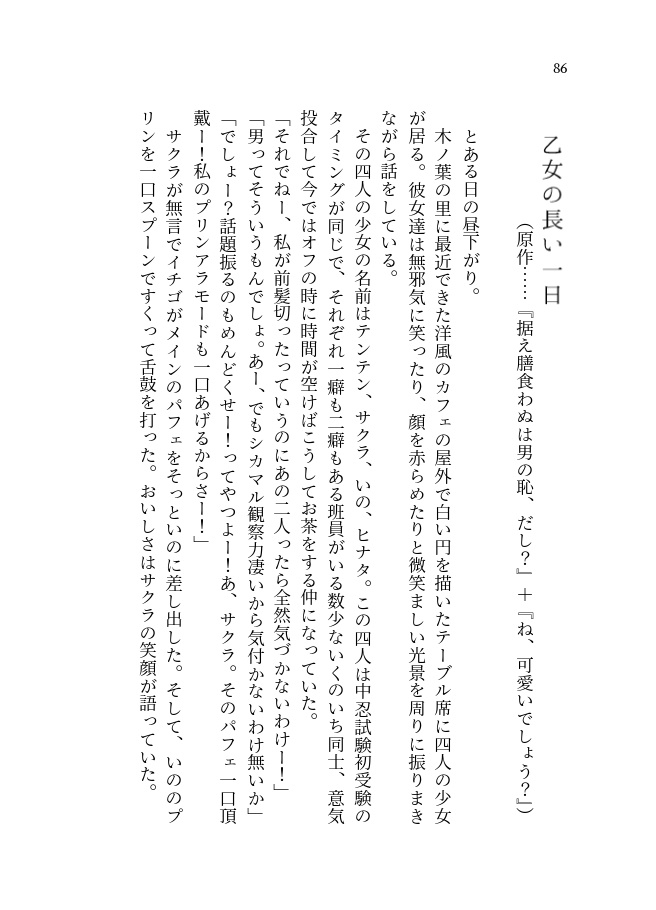 86
乙女の長い一日
（原作……『据え膳食わぬは男の恥、だし？』＋『ね、可愛いでしょう？』）
とある日の昼下がり。
木ノ葉の里に最近できた洋風のカフェの屋外で白い円を描いたテーブル席に四人の少女
が居る。彼女達は無邪気に笑ったり、顔を赤らめたりと微笑ましい光景を周りに振りまき
ながら話をしている。
その四人の少女の名前はテンテン、サクラ、いの、ヒナタ。この四人は中忍試験初受験の
タイミングが同じで、それぞれ一癖も二癖もある班員がいる数少ないくのいち同士、意気
投合して今ではオフの時に時間が空けばこうしてお茶をする仲になっていた。
「それでねー、私が前髪切ったっていうのにあの二人ったら全然気づかないわけー！」
「男ってそういうもんでしょ。あー、でもシカマル観察力凄いから気付かないわけ無いか」
「でしょー？話題振るのもめんどくせー！ってやつよー！あ、サクラ。そのパフェ一口頂
戴ー！私のプリンアラモードも一口あげるからさー！」
サクラが無言でイチゴがメインのパフェをそっといのに差し出した。そして、いののプ
リンを一口スプーンですくって舌鼓を打った。おいしさはサクラの笑顔が語っていた。